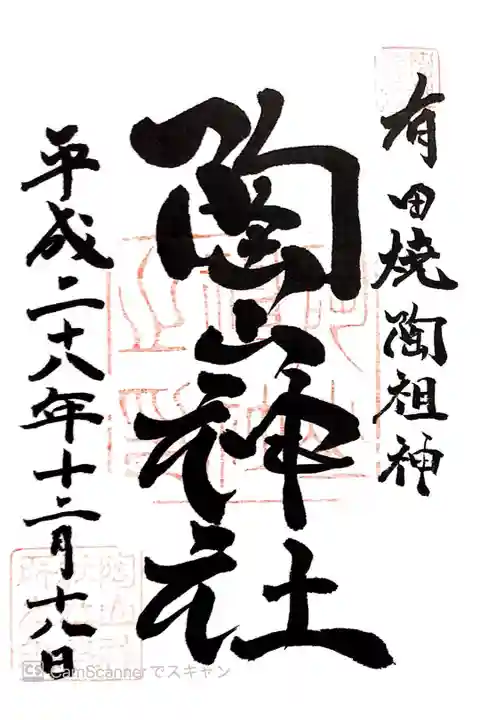 有田焼陶祖神
陶山神社
平成二十八年十二月十八日
CS CamScannerでスキャン